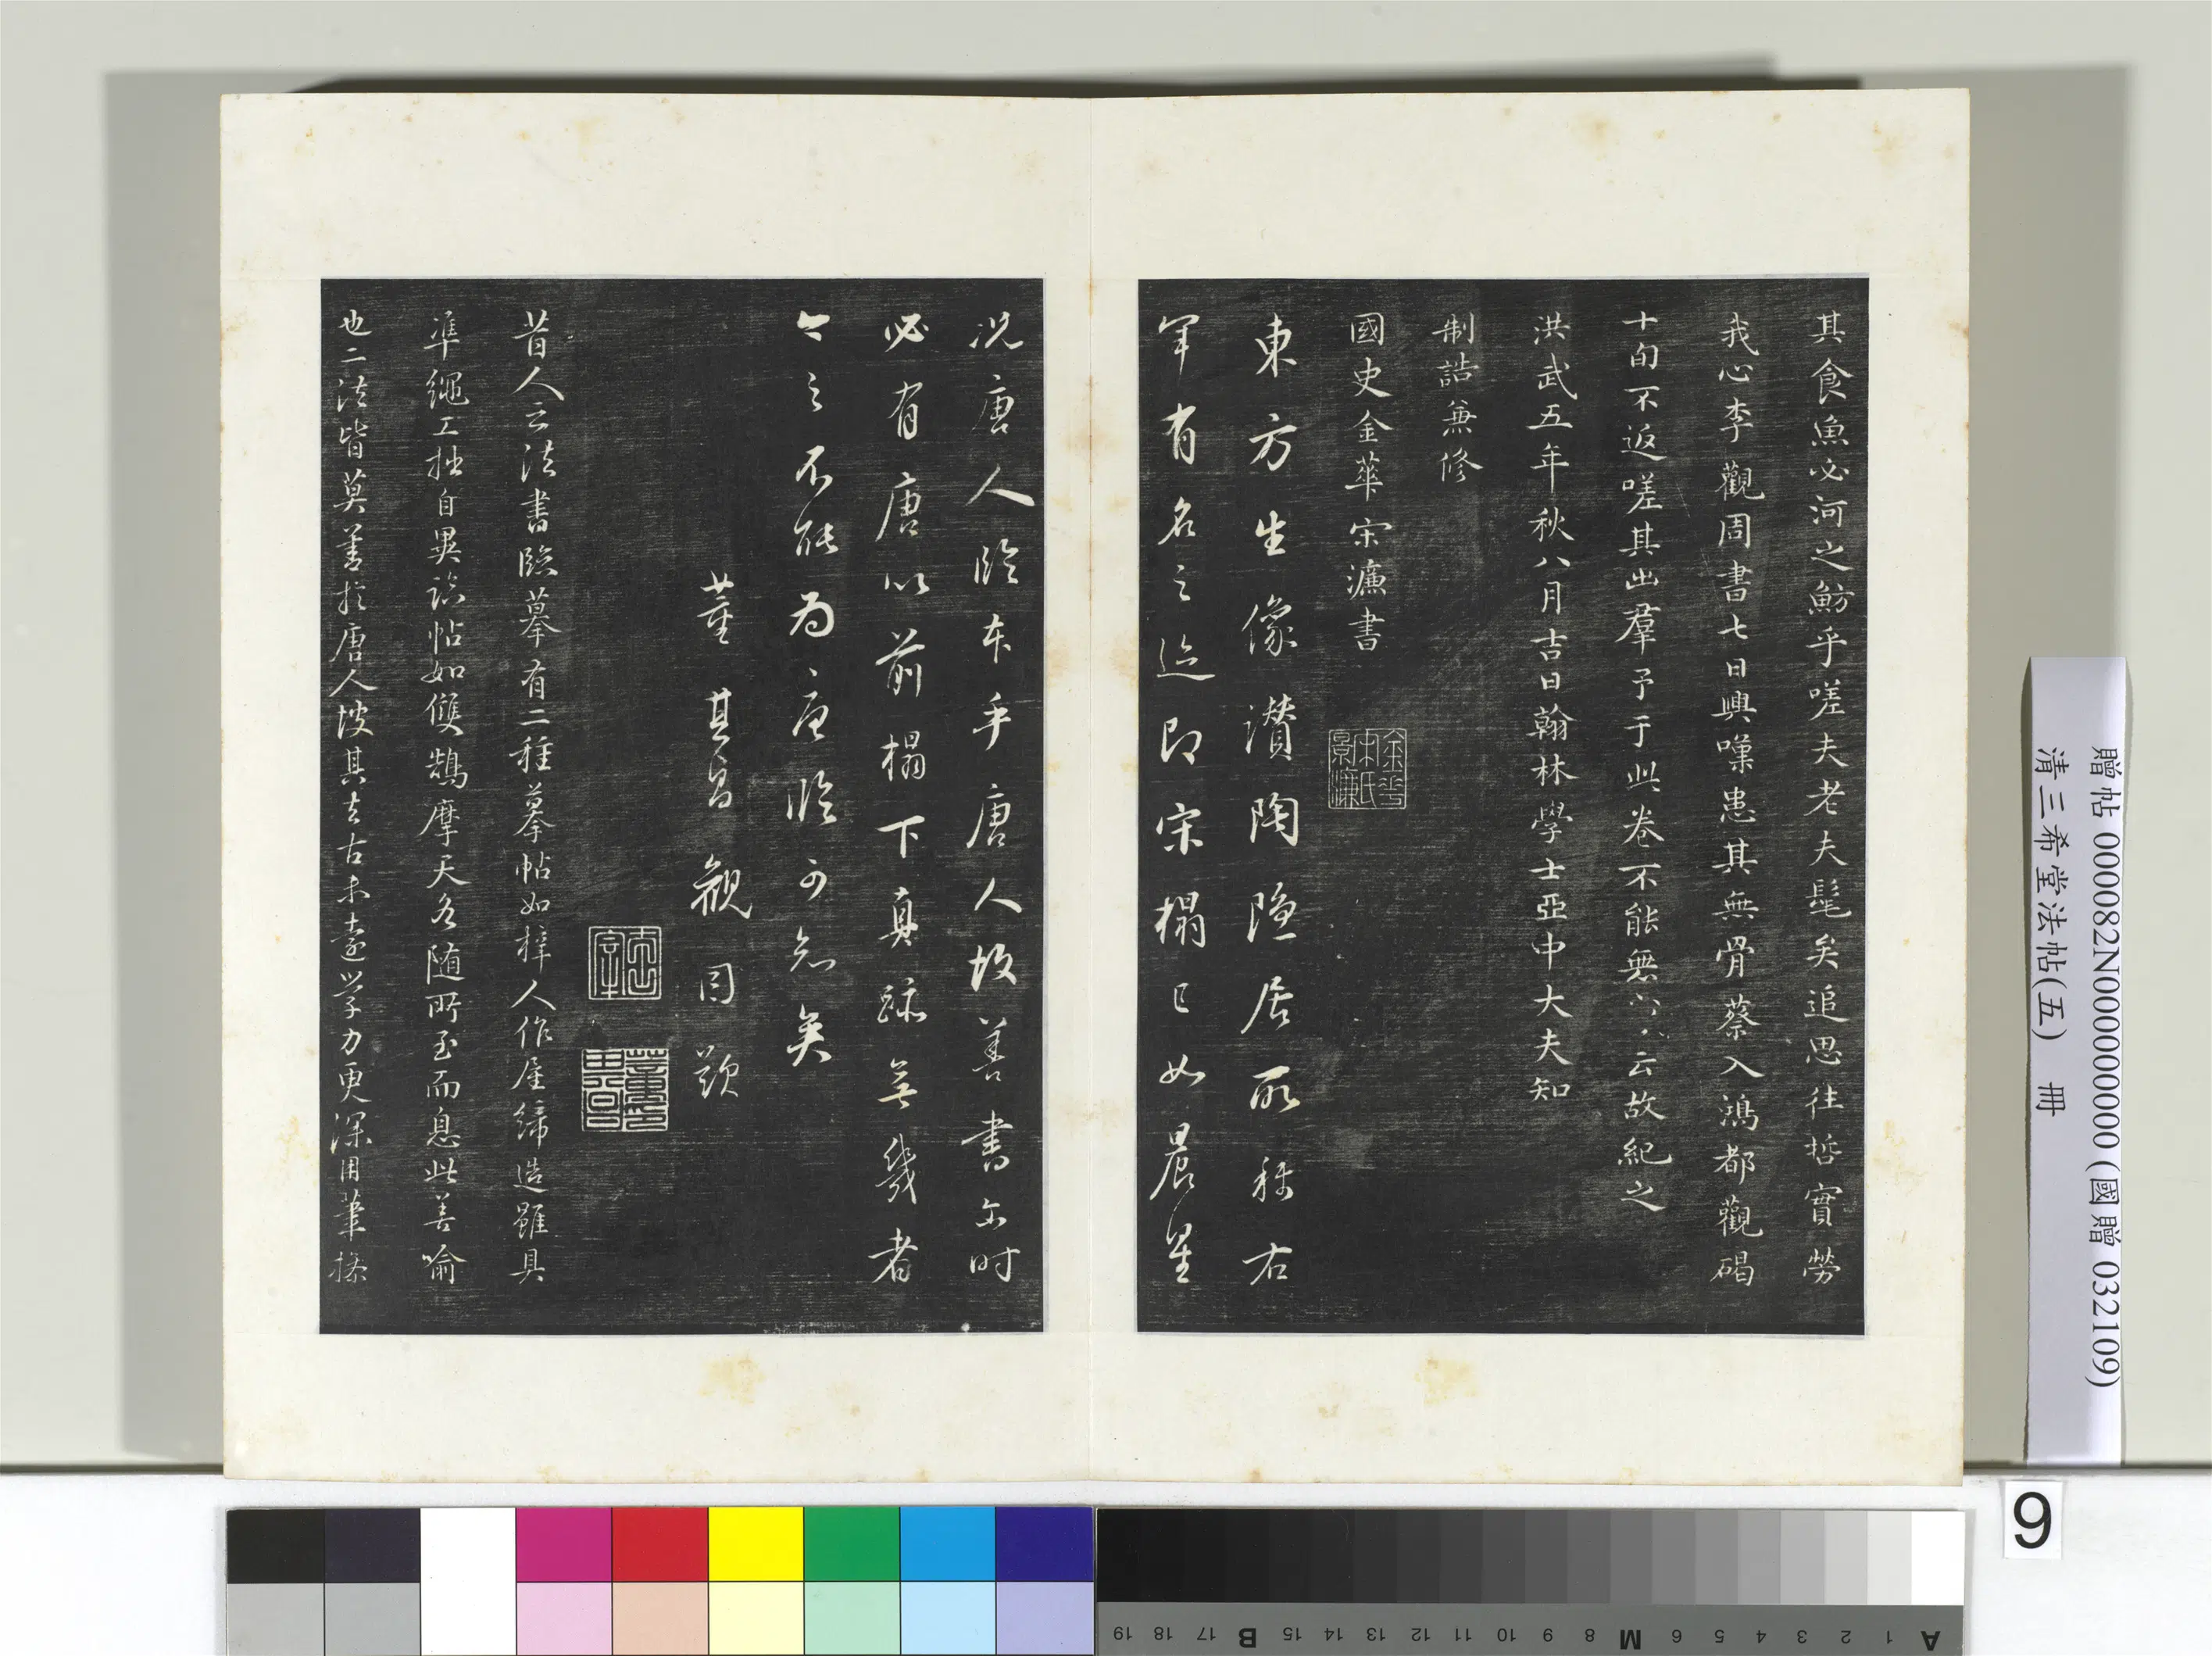 其食魚必河之魴乎嗟夫老夫髦矣追思往哲實勞
我心李觀周書七日興嘆患其無骨蔡入鴻都觀碣
十旬不返嗟其出羣予于此卷不能無亦云故紀之
洪武五年秋八月吉日翰林學士亞中大夫知
制誥兼修
國史金華宋濂書
金華宋氏景濂
東方生像讚陶隱居所稱右
軍有名之迹即宋榻已如晨星
況唐人臨本乎唐人故善書尒時
必有唐以前榻下真跡無幾者
今之不能為唐臨可知矣
董其昌觀因題
太史氏
董其昌印
昔人云法書臨摹有二種摹帖如梓人作屋締造雖具
準繩工拙自異臨帖如雙鵠摩天各隨所至而息此善喻
也二法皆莫善於唐人彼其去古未遠學力更深用筆操
贈帖 000082N000000000 (國贈 032109)
清三希堂法帖(五) 冊
9
A 1 2 3 4 5 6 M 8 9 10 11 12 13 14 15 B 17 18 19